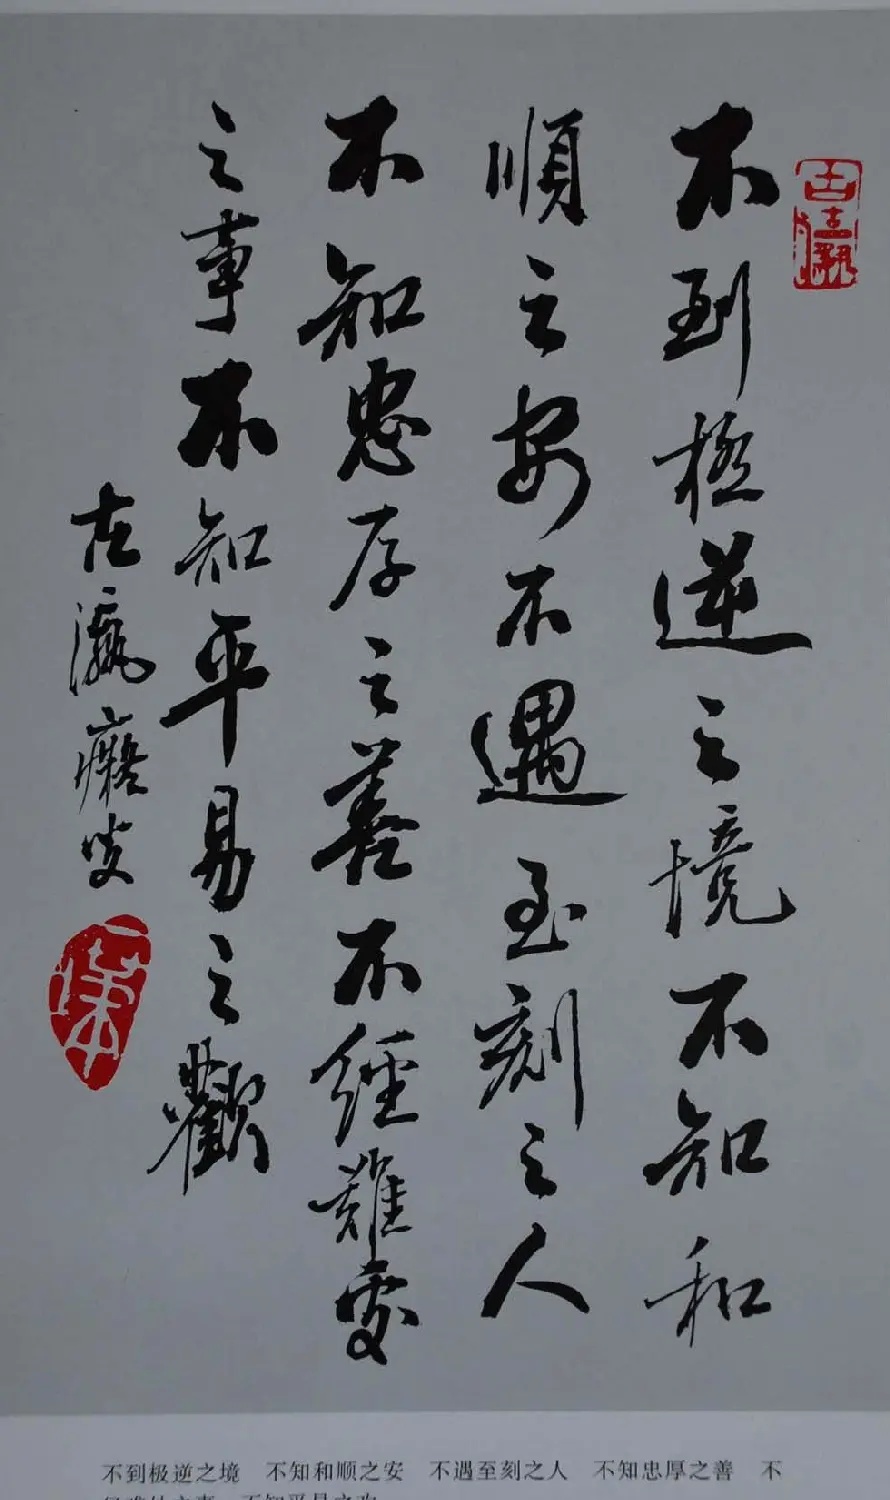 不到極逆之境不知和
順之安不遇至刻之人
不知忠厚之善不經難處
之事不知平易之歡
左瀛癡叟
不到极逆之境　不知和顺之安　不遇至刻之人　不知忠厚之善　不